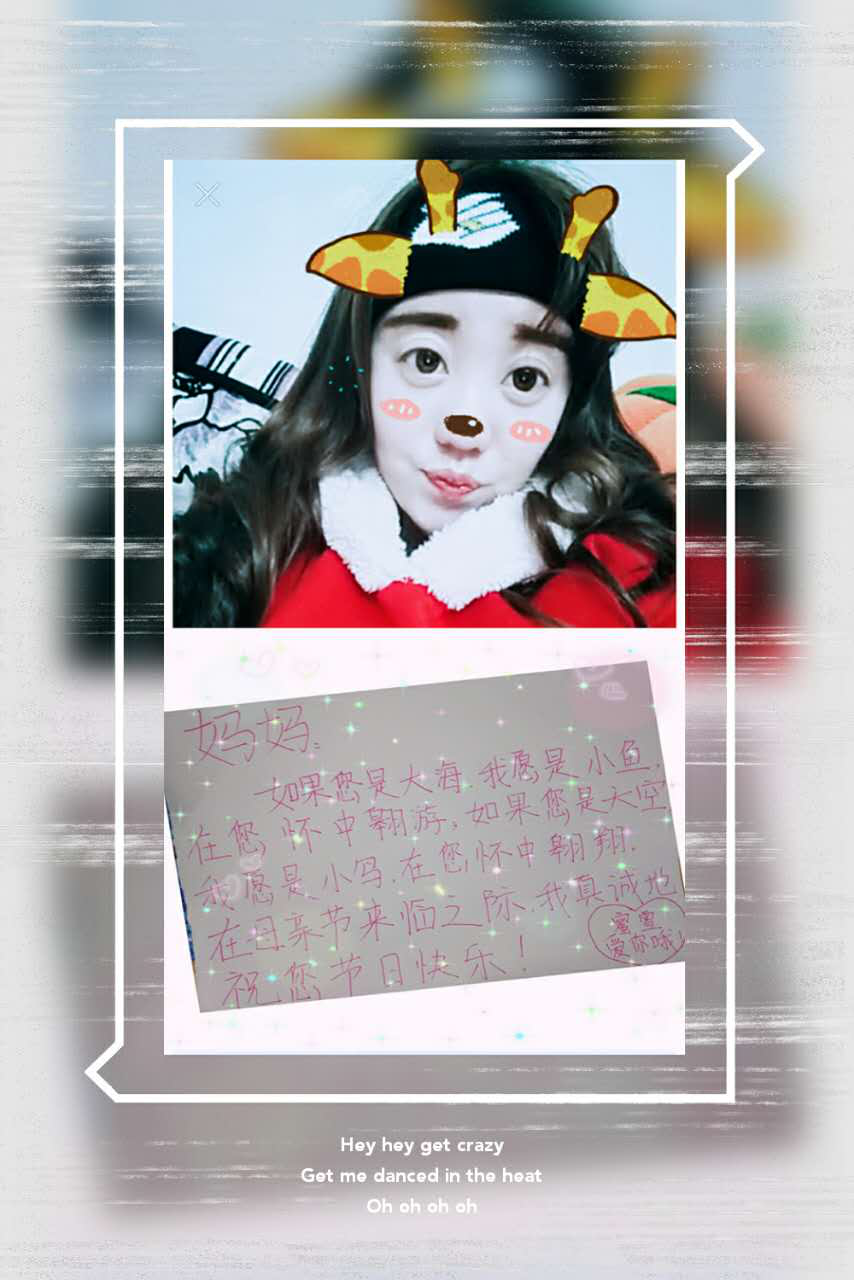 妈妈:
如果您是大海.我愿是小鱼.
在您怀中翱游,如果您是天空
我愿是小鸟.在您怀中翱翔.
在母亲节来临之际.我真诚地
祝您节日快乐!
爱你哦!
Hey hey get crazy
Get me danced in the heat
Oh oh oh oh